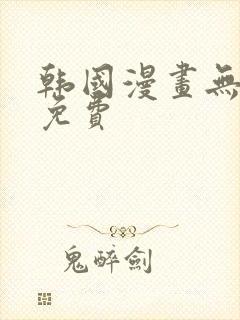 韩國漫畫無
免費
鬼醉劍